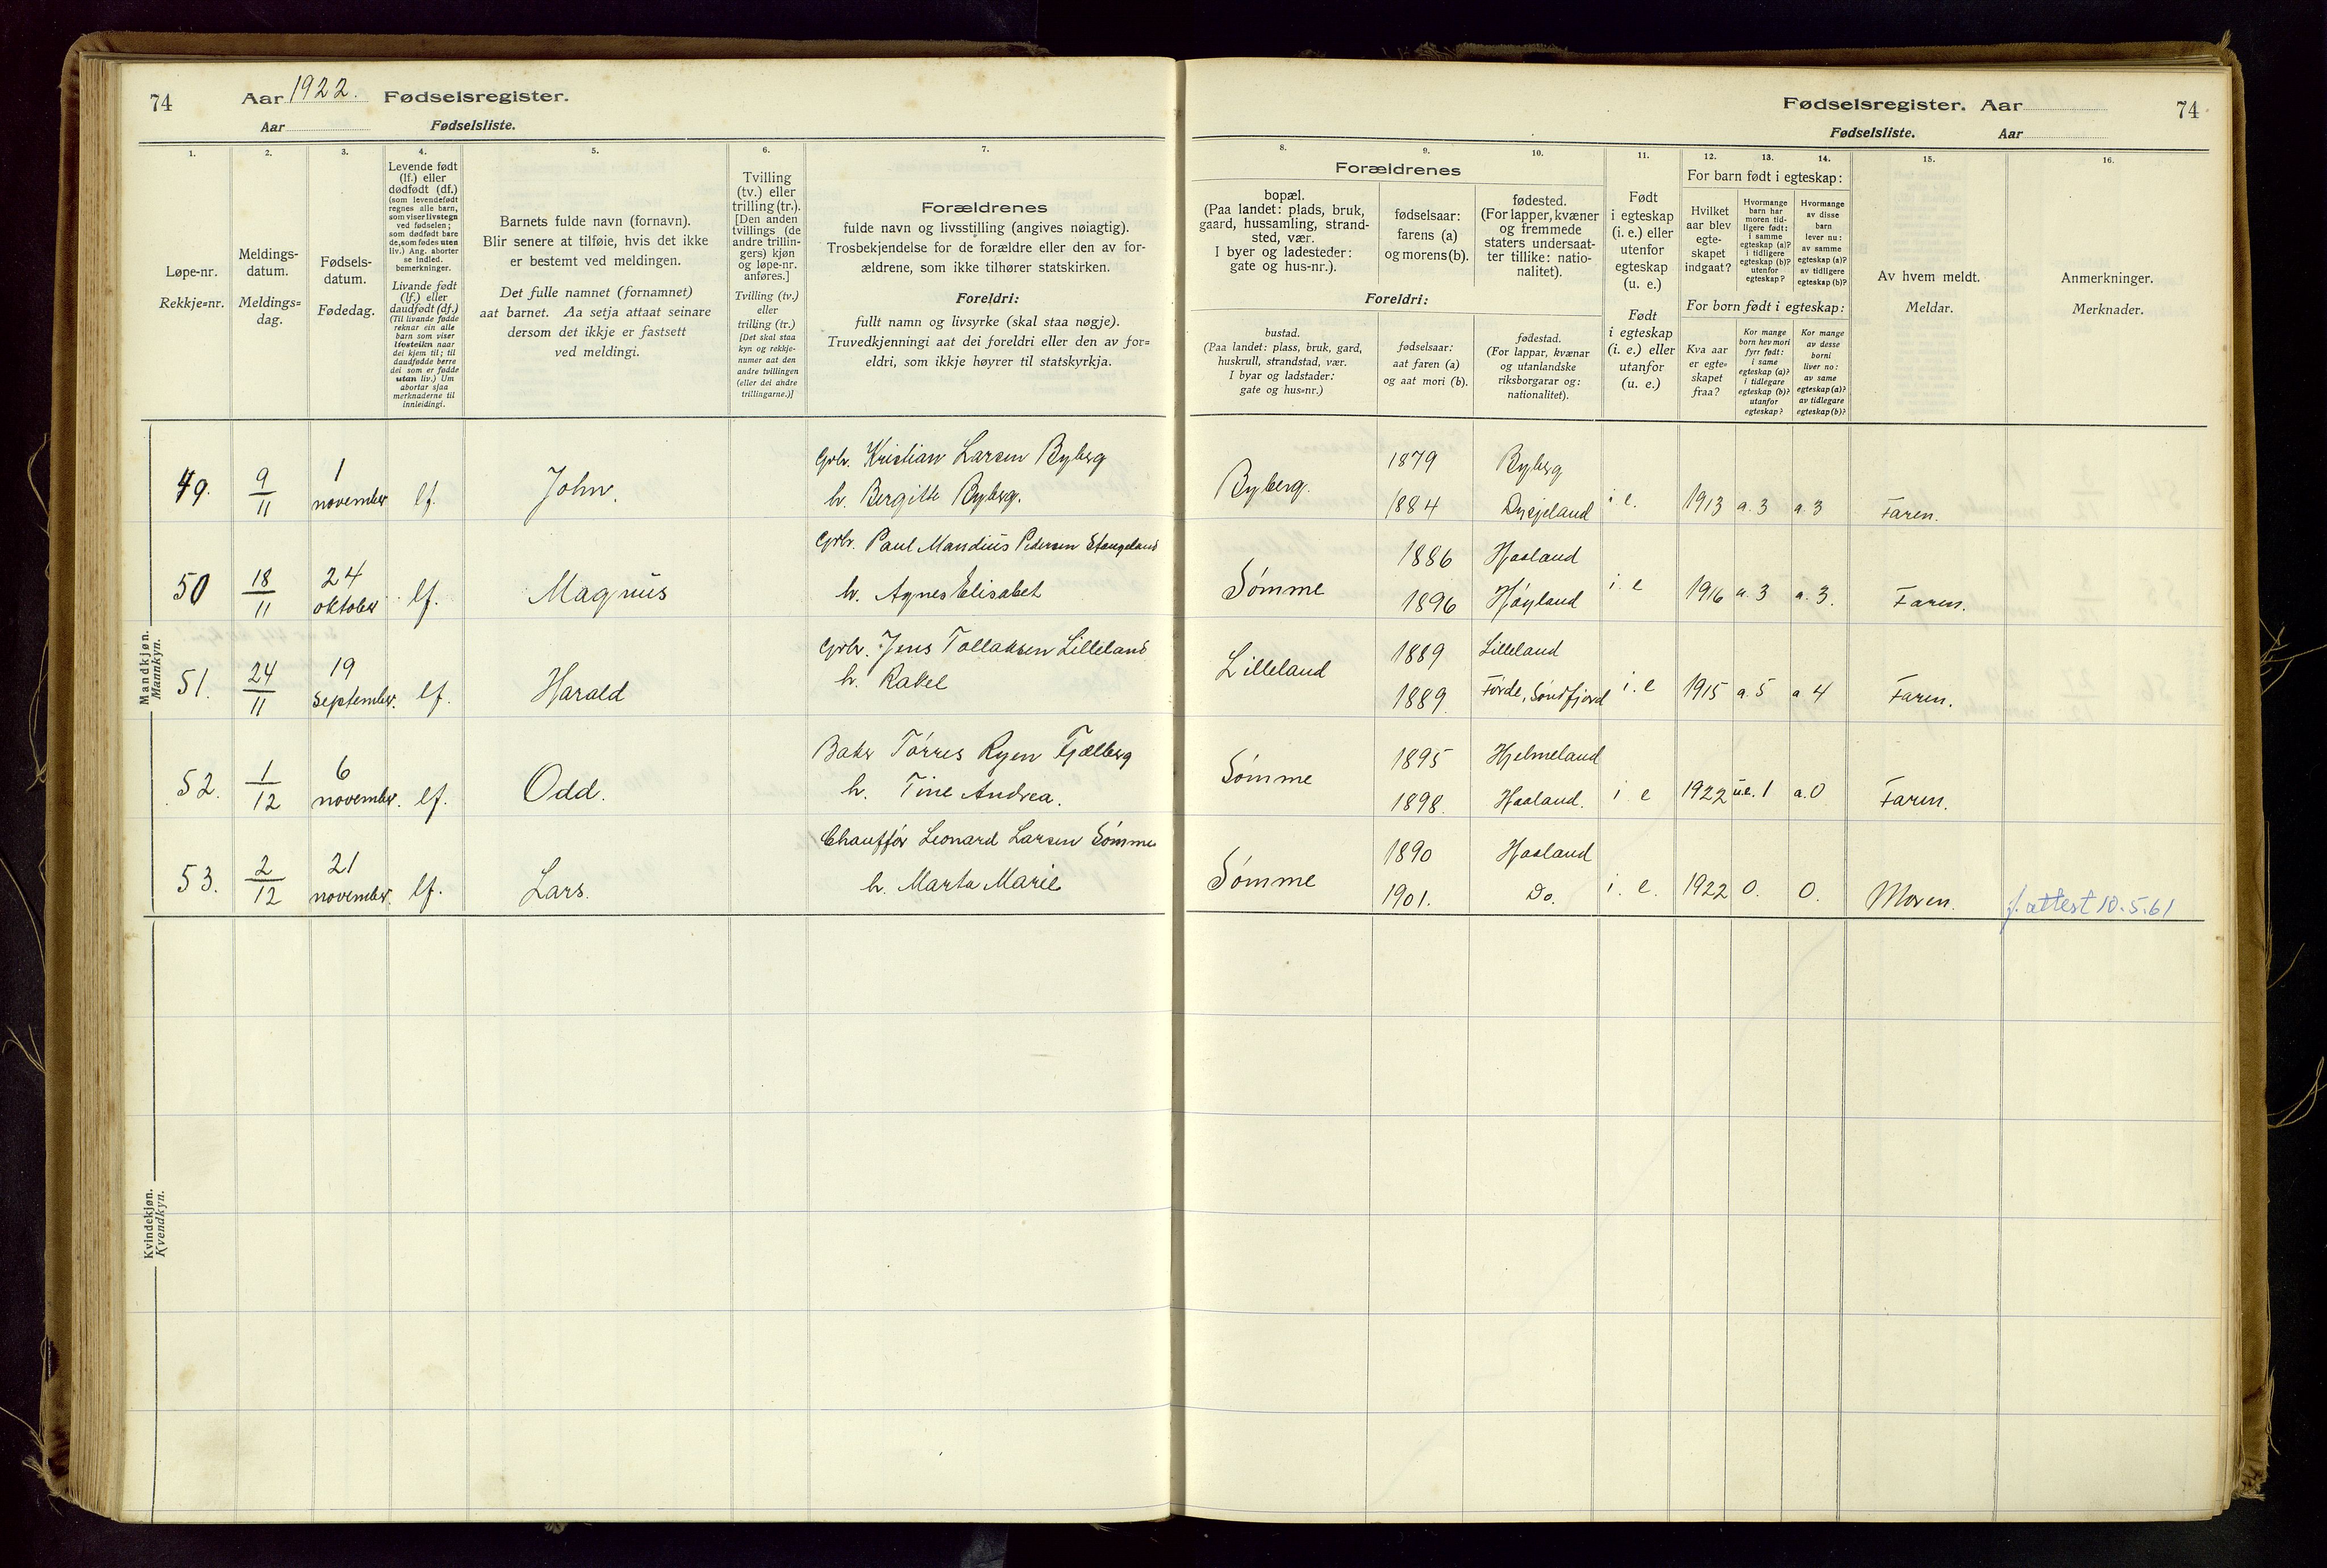 74
Aar 1922. Fødselsregister.
Aar Fødselsliste.
1.
Løpe-nr.
Rekkje=nr.
2.
Meldings-
datum.
Meldings=
dag.
3.
Fødsels-
datum.
Fødedag.
4.
Levende født
(lf.) eller
dødfødt (df.)
(som levendefødt
regnes alle barn,
som viser livstegn
ved fødselen;
som dødfødt bare
de, som fødes uten
liv.) Ang. aborter
se indled.
bemerkninger.
Livande født
(lf.) eller
daudfødt (df.)
(Til livande fødde
reknar ein alle
barn som viser
livsteikn naar
dei kjem til; til
daudfødde berre
dei som er fødde
utan liv.) Um
abortar sjaa
merknaderne til
innleidingi.
5.
Barnets fulde navn (fornavn).
Blir senere at tilføie, hvis det ikke
er bestemt ved meldingen.
Det fulle namnet (fornamnet)
aat barnet. Aa setja attaat seinare
dersom det ikkje er fastsett
ved meldingi.
6.
Tvilling
(tv.) eller
trilling (tr.).
[Den anden
tvillings (de
andre trillin-
gers) kjøn
og løpe-nr.
anføres.]
Tvilling (tv.)
eller
trilling (tr.)
[Det skal staa
kyn og rekkje-
numer aat den
andre tvillingen
(eller dei andre
trillingarne.)]
7.
Forældrenes
fulde navn og livsstilling (angives nøiagtig).
Trosbekjendelse for de forældre eller den av for-
ældrene, som ikke tilhører statskirken.
Foreldri:
fullt namn og livsyrke (skal staa nøgje).
Truvedkjenningi aat dei foreldri eller den av for=
eldri, som ikkje høyrer til statskyrkja.
Mandkjøn.
Mannkyn.
49. 9/11 1 november lf. John. Grbr. Kristian Larsen Byberg
h. Bergitte Byberg.
50 18/11 24 oktober lf. Magnus Grbr. Paul Mandius Pedersen Stangeland
h. Agnes Elisabet
51. 24/11 19 september. lf. Harald Grbr. Jens Tollaksen Lilleland
h. Rakel
52. 1/12 6 november. lf. Odd. Baker Tørres Ryen Fjælberg
h. Tine Andrea.
53. 2/12 21 november. lf. Lars. Chauffør Leonard Larsen Sømme
h. Marta Marie
Kvindekjøn.
Kvendkyn.
Fødselsregister. Aar
74
Fødselsliste. Aar
8.
Forældrenes
bopæl.
(Paa landet: plads, bruk,
gaard, hussamling, strand-
sted, vær.
I byer og ladesteder:
gate og hus-nr.).
Foreldri:
bustad.
(Paa landet: plass, bruk, gard,
huskrull, strandstad, vær.
I byar og ladstader:
gate og hus=nr.)
9.
fødselsaar:
farens (a)
og morens (b).
fødselsaar:
aat faren (a)
og aat mori (b).
10.
fødested.
(For lapper, kvæner
og fremmede
staters undersaat-
ter tillike: natio-
nalitet).
fødestad.
(For lappar, kvænar
og utanlandske
riksborgarar og:
nationalitet).
11.
Født
i egteskap
(i. e.) eller
utenfor
egteskap
(u. e.)
Født
i egteskap
(i. e.) eller
utanfor
(u. e.)
12. 13. 14.
For barn født i egteskap:
Hvilket
aar blev
egte-
skapet
indgaat?
Hvormange
barn har
moren tid-
ligere født:
i samme
egteskap (a)?
i tidligere
egteskap (b)?
utenfor
egteskap?
Hvormange
av disse
barn
lever nu:
av samme
egteskap (a)?
av tidligere
egteskap (b)?
For born født i egteskap:
Kva aar
er egte-
skapet
fraa?
Kor mange
born hev mori
fyrr født:
i same
egteskap (a)?
i tidlegare
egteskap (b)?
utanfor
egteskap?
Kor mange
av desse
borni
liver no:
av same
egteskap (a)?
av tidlegare
egteskap (b)?
15.
Av hvem meldt.
Meldar.
16.
Anmerkninger.
Merknader.
Byberg. 1879 Byberg
1884 i e. 1913 a. 3 a. 3 Faren.
Sømme 1886 Haaland
1896 Høyland i. e 1916 a. 3 a. 3. Faren.
Lilleland 1889 Lilleland
1889 Førde, Søndfjord i. e 1915 a. 5 a 4 Faren.
Sømme 1895 Hjelmeland
1898. Haaland. i e 1922 u.e. 1 a. 0 Faren.
Sømme 1890 Haaland
1901. Do. i. e. 1922 0. 0. Moren. f. attest 10.5.61